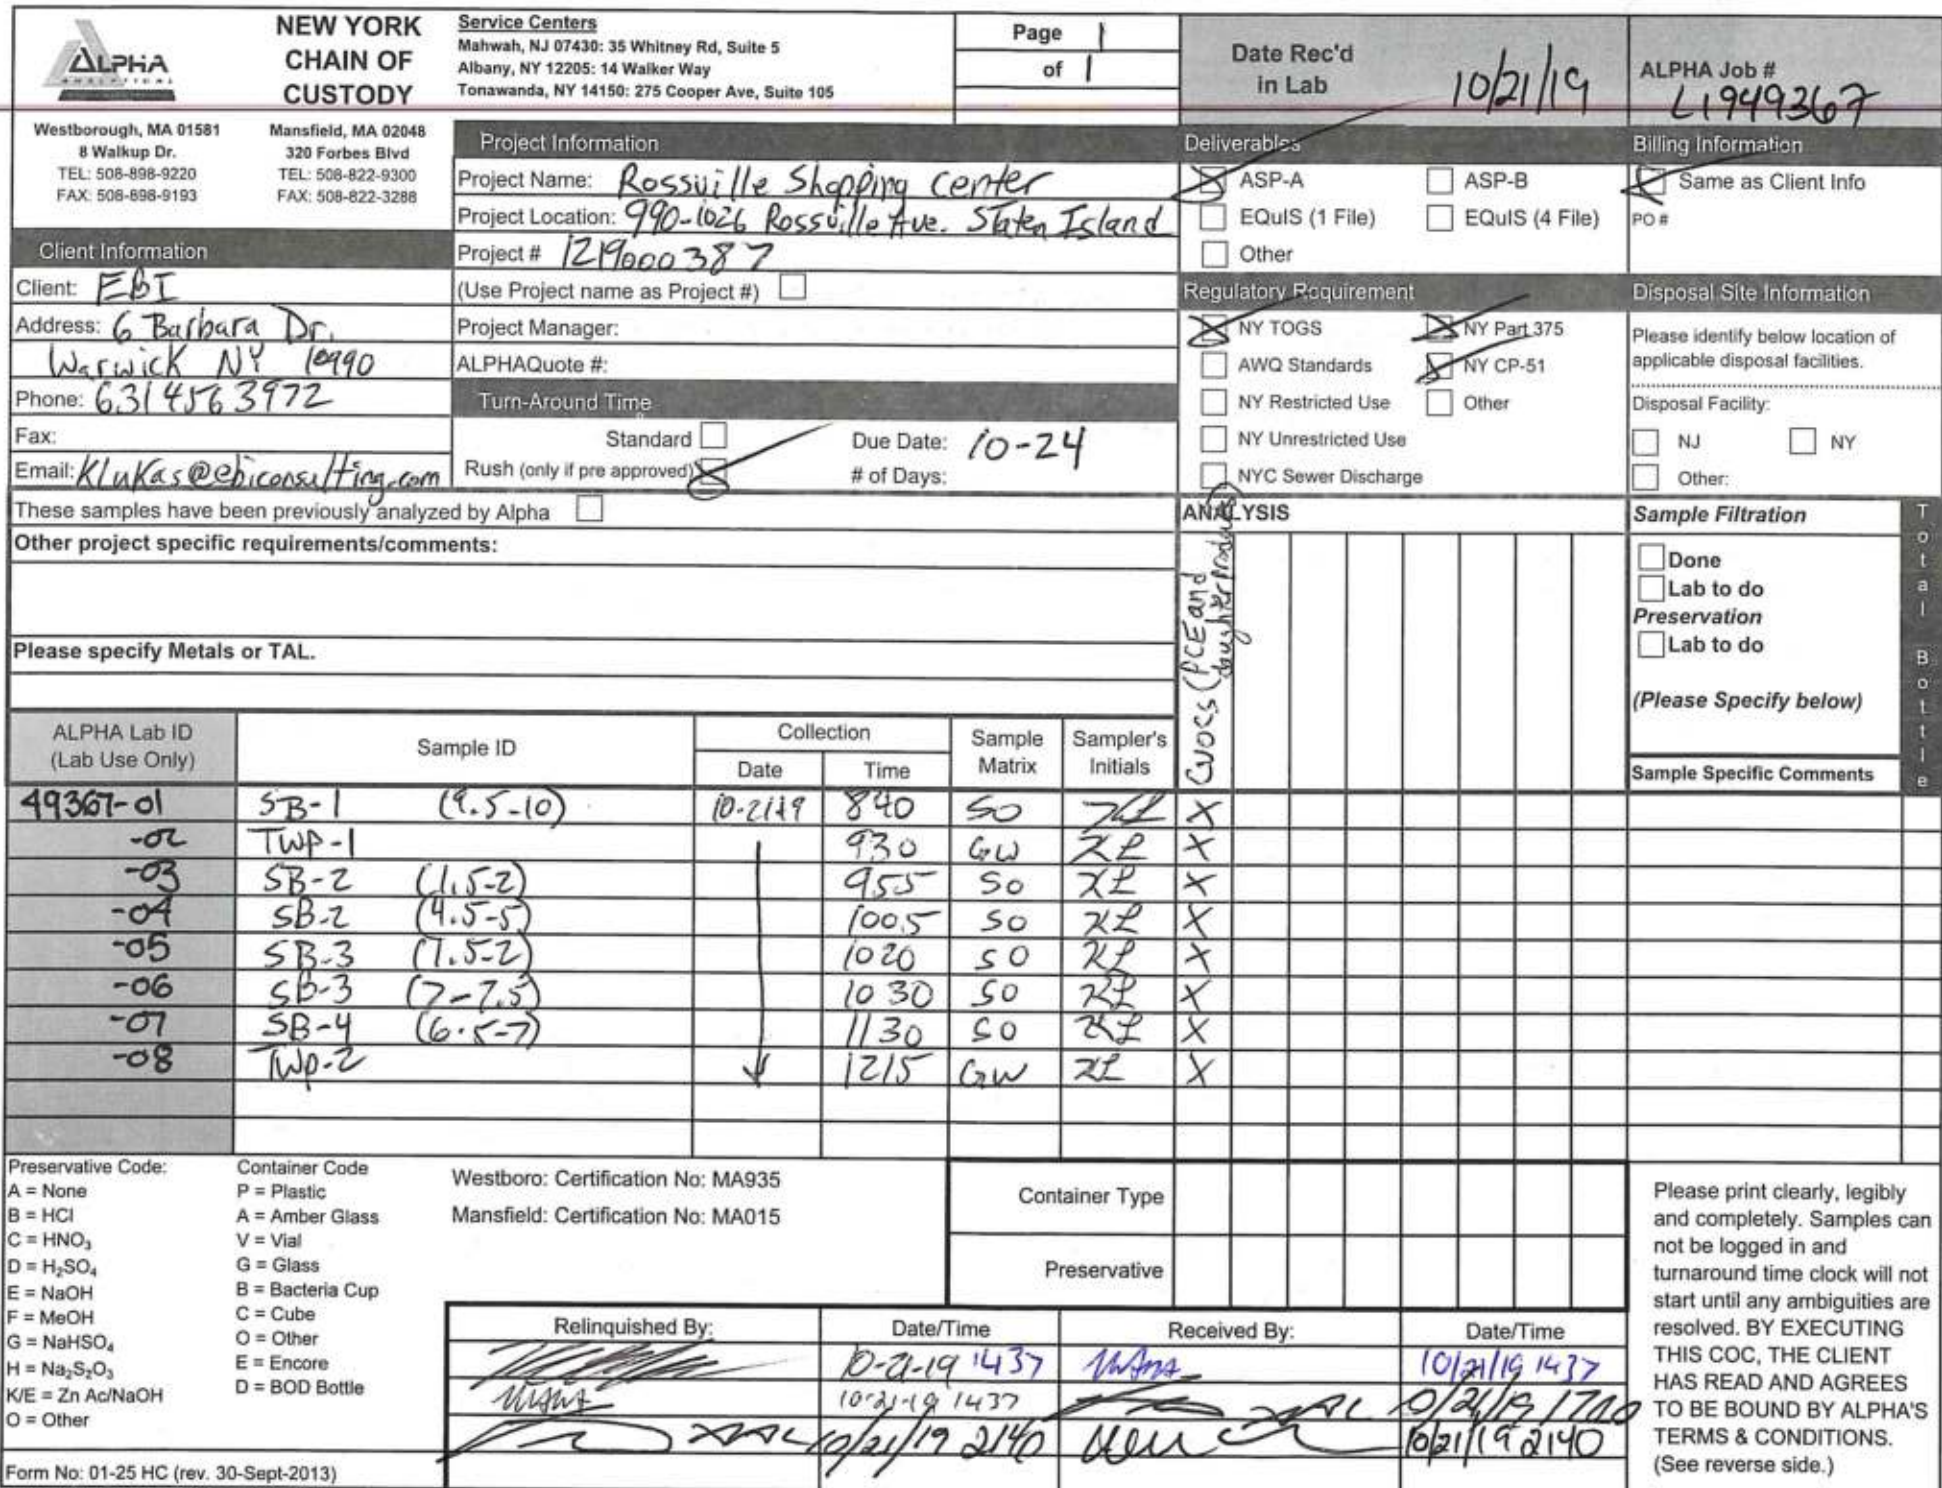 ALPHA
ANALYTICAL
NEW YORK
CHAIN OF
CUSTODY
Service Centers
Mahwah, NJ 07430: 35 Whitney Rd, Suite 5
Albany, NY 12205: 14 Walker Way
Tonawanda, NY 14150: 275 Cooper Ave, Suite 105
Page 1
of 1
Date Rec'd
in Lab 10/21/19
ALPHA Job #
L1949367
Westborough, MA 01581
8 Walkup Dr.
TEL: 508-898-9220
FAX: 508-898-9193
Mansfield, MA 02048
320 Forbes Blvd
TEL: 508-822-9300
FAX: 508-822-3288
Project Information
Project Name: Rossville Shopping Center
Project Location: 990-1026 Rossville Ave. Staten Island
Project # 1219000387
(Use Project name as Project #)
Project Manager:
ALPHAQuote #:
Deliverables
ASP-A ASP-B
EQuIS (1 File) EQuIS (4 File)
Other
Billing Information
Same as Client Info
PO #
Client Information
Client: EBI
Address: 6 Barbara Dr.
Warwick NY 10990
Phone: 6314563972
Fax:
Email: Klukas@ebiconsulting.com
Turn-Around Time
Standard Due Date: 10-24
Rush (only if pre approved) # of Days:
Regulatory Requirement
NY TOGS NY Part 375
AWQ Standards NY CP-51
NY Restricted Use Other
NY Unrestricted Use
NYC Sewer Discharge
Disposal Site Information
Please identify below location of
applicable disposal facilities.
Disposal Facility:
NJ NY
Other:
These samples have been previously analyzed by Alpha
Other project specific requirements/comments:
Please specify Metals or TAL.
ANALYSIS
CVOCs (PCE and
daughter products)
Sample Filtration
Done
Lab to do
Preservation
Lab to do
(Please Specify below)
Total Bottle
ALPHA Lab ID
(Lab Use Only)
Sample ID
Collection
Date Time
Sample
Matrix
Sampler's
Initials
Sample Specific Comments
49367-01 SB-1 (9.5-10) 10-21-19 840 SO KL X
-02 TWP-1 930 GW KL X
-03 SB-2 (1.5-2) 955 SO KL X
-04 SB-2 (4.5-5) 1005 SO KL X
-05 SB-3 (1.5-2) 1020 SO KL X
-06 SB-3 (7-7.5) 1030 SO KL X
-07 SB-4 (6.5-7) 1130 SO KL X
-08 TWP-2 1215 GW KL X
Preservative Code:
A = None
B = HCl
C = HNO₃
D = H₂SO₄
E = NaOH
F = MeOH
G = NaHSO₄
H = Na₂S₂O₃
K/E = Zn Ac/NaOH
O = Other
Container Code
P = Plastic
A = Amber Glass
V = Vial
G = Glass
B = Bacteria Cup
C = Cube
O = Other
E = Encore
D = BOD Bottle
Westboro: Certification No: MA935
Mansfield: Certification No: MA015
Container Type
Preservative
Relinquished By: Date/Time Received By: Date/Time
10-21-19 1437 10/21/19 1437
10-21-19 1437 AAL 10/21/19 1700
AAL 10/21/19 2140 10/21/19 2140
Please print clearly, legibly
and completely. Samples can
not be logged in and
turnaround time clock will not
start until any ambiguities are
resolved. BY EXECUTING
THIS COC, THE CLIENT
HAS READ AND AGREES
TO BE BOUND BY ALPHA'S
TERMS & CONDITIONS.
(See reverse side.)
Form No: 01-25 HC (rev. 30-Sept-2013)